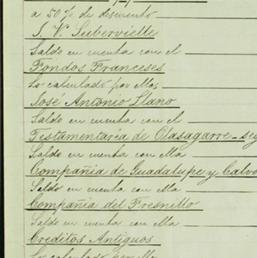 a 50% de descuento
J. V. Subervielle
Saldo en cuenta con el
Fondos Franceses
Lo calculado por Mas
José Antonio Llano
Saldo en cuenta con el
Testamentaria de Olasagarre
Saldo en cuenta con la
Compañia de Guadalupe y Calvo
Saldo en cuenta con la
Compañia del Fresnillo
Saldo en cuenta con la
Creditos Antiguos
Lo calculado por Mas